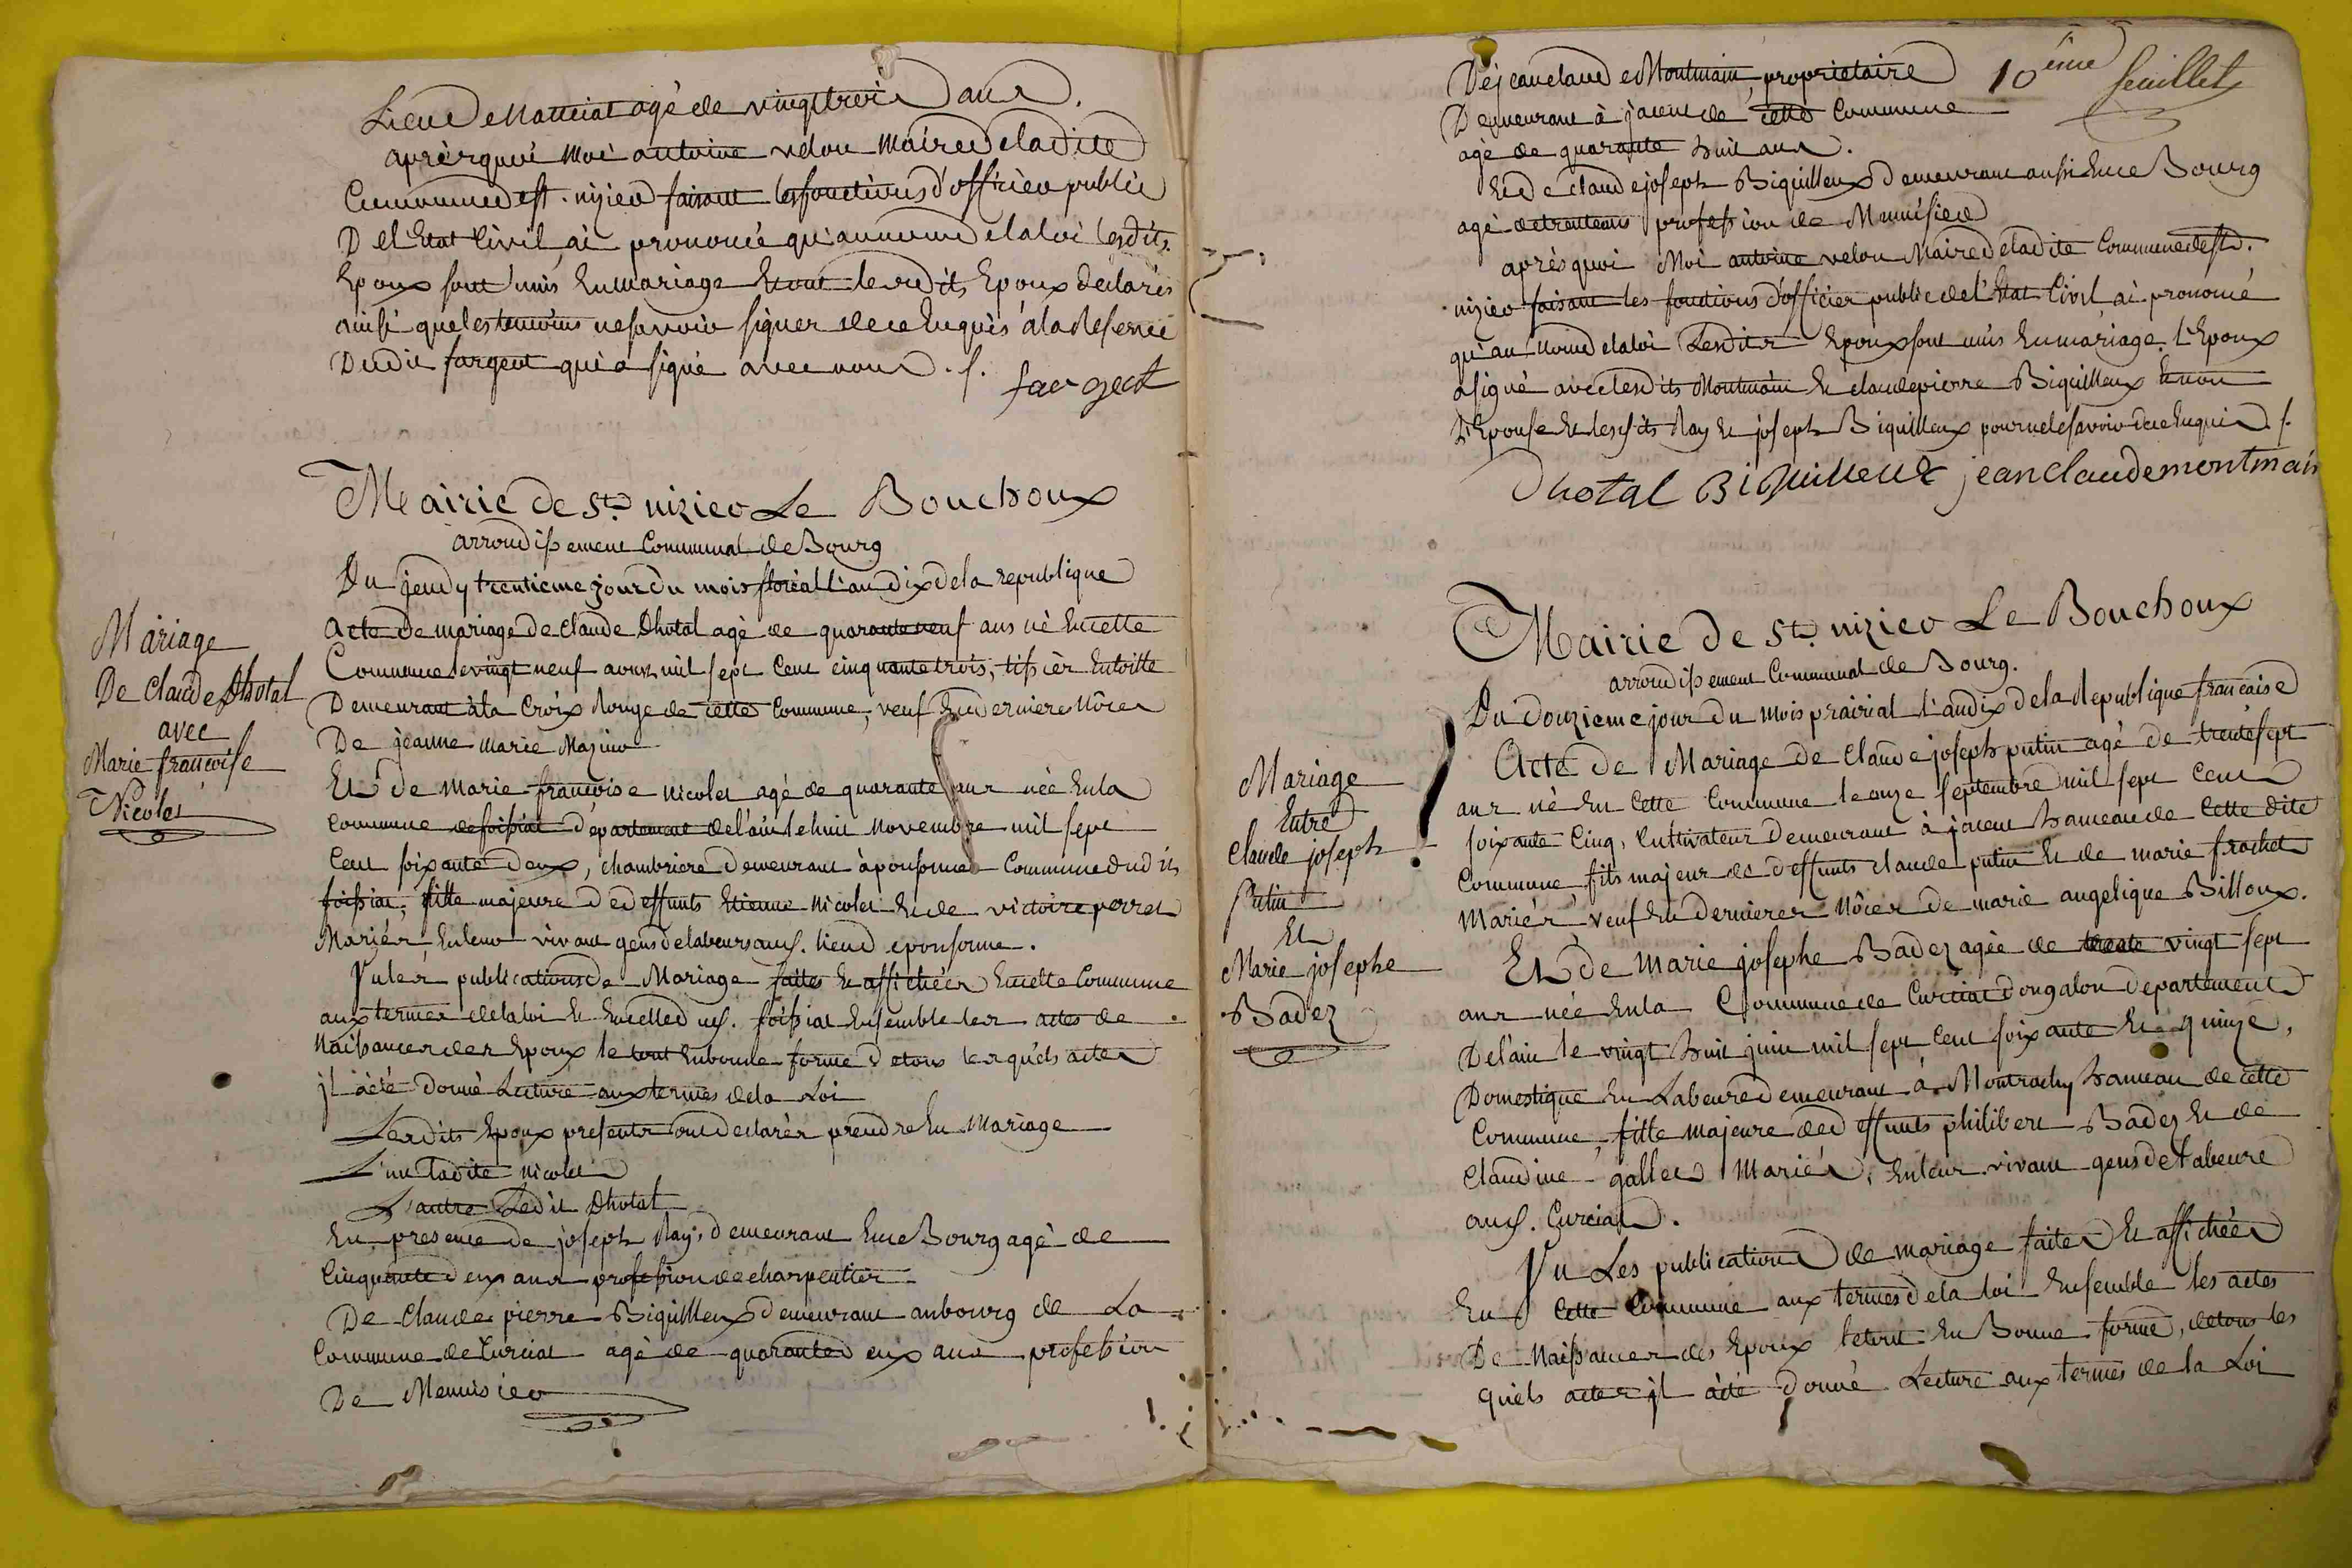 Lieu de Manteiat agé de vingt trois ans.
apres quoi Moi antoine velon Maire de ladite
Commune de st. nizier faisant les fonctions d'officier public
De l'Etat Civil, ai prononcé qu'au nom de la loi lesdits
Epoux sont unis En mariage Et ont lesdits Epoux déclarés
ainsi que les temoins ne savoir signer de ce Enquis a la Reserve
Dudit fargeot qui a signé avec nous ./.
fargeot
Mairie de St. nizier Le Bouchoux
arrondissement Communal de Bourg
Du jeudy trentieme jour du mois floréal l'an dix de la republique
Mariage
De Claude Dhotal
avec
Marie francoise
Nicolet
Acte De mariage de Claude Dhotal agé de quarante neuf ans né En cette
Commune le vingt neuf aoust mil sept Cent cinquante trois, tissier En toille
Demeurant à la Croix Rouge de cette Commune, veuf En dernieres Nôces
De jeanne marie Mazuir
Et De Marie francoise nicolet agé de quarante ans née En la
Commune de foissiat département de l'ain le huit novembre mil sept
Cent soixante Deux, chambriere Demeurant à ponsonnod Commune dudit
foissiat, fille majeure De deffunts Etienne Nicolet Et de victoire perret
Mariés En leur vivant gens de labeurs aus. lieu d eponsonne.
Vu les publications de Mariage faites Et affichées En cette Commune
aux termes de la loi Et En celle dud. foissiat Ensemble les actes de
Naissances des Epoux le tout En bonne forme de tous lesquels actes
jl à été donné Lecture aux termes de la Loi
Lesdits Epoux presents ont declarés prendre En Mariage
L'un ladite Nicolet
L'autre Ledit Dhotal
En presence De joseph Ray, demeurant En ce Bourg agé de
Cinquante deux ans profession de charpentier
De Claude pierre Biquilleux Demeurant au bourg de La
Commune de Curciat agé de quarante deux ans profession
De Menuisier
10ème feuillet
De jean claude Montmain, proprietaire
Demeurant à jacune de cette Commune
agé de quarante huit ans.
Et De Claude joseph Biquilleux Demeurant aussi En ce Bourg
agé de trente ans profession de Menuisier
après quoi Moi antoine velon Maire de ladite Commune de st.
nizier faisant les fonctions d'officier public de l'Etat Civil ai prononcé
qu'au Nom de la loi Lesdits Epoux sont unis En mariage. L'Epoux
a signé avec lesdits Montmain Et claude pierre Biquilleux Et non
L'Epouse Et lesdits Ray Et joseph Biquilleux pour ne le savoir de ce Enquis ./.
Dhotal Biquilleux jean claude montmain
Mairie de St. nizier Le Bouchoux
arrondissement Communal de Bourg.
Du Douzieme jour du mois prairial l'an dix de la Republique francaise
Mariage
Entre
Claude joseph
Putin
Et
Marie josephe
Badez
Acte de Mariage de Claude joseph putin agé de trente sept
ans né En Cette Commune le onze septembre mil sept Cent
soixante Cinq, Cultivateur Demeurant à jacune hameau de Cette dite
Commune fils majeur de deffunts claude putin Et de marie frachet
Mariés, veuf En Dernieres Nôces de marie angelique Billoux.
Et De Marie josephe Badez agée de vingt sept
ans née En la Commune de Curciat dongalon Departement
De l'ain le vingt huit juin mil sept Cent soixante Et quinze,
Domestique En Labeure Demeurant à Montrachy hameau de cette
Commune, fille majeure de deffunts philibert Badez Et de
Claudine gallet Mariés, En leur vivant gens de labeure
aus. Curciat.
Vu Les publications de mariage faites Et affichées
En Cette Commune aux termes de la loi Ensemble les actes
De Naissances des Epoux le tout En Bonne forme, de tous les
quels actes jl à été donné Lecture aux termes de la Loi